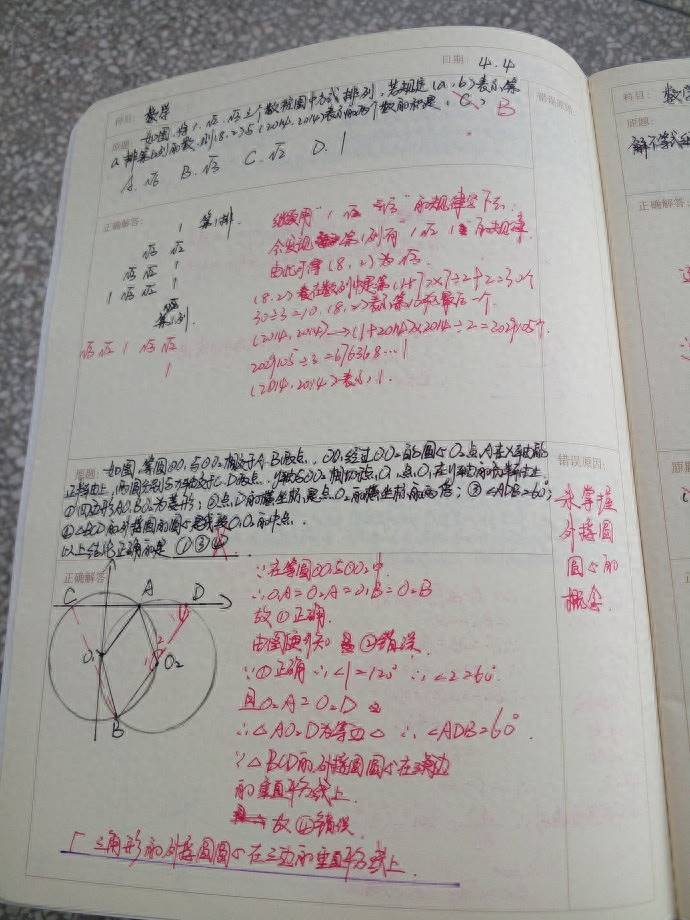 日期: 4.4
科目: 数学
错误原因:
原题: 如图,将1,√2,√3三个数按图中方式排列,若规定(a,b)表示第
a排第b列的数,则(8,2)与(2014,2014)表示的两个数的积是(C) B
A.√6 B.√3 C.√2 D.1
正确解答:
1 第1排
√3 √2
√3 √2 1
1 √3 √2 1
第1列
√3 √2 1 √3 √2
1
继续用"1 √2 √3"的规律写下去,
会发现第1列有"1 √2 1"的规律
由此可得(8,2)为√3
(8,2)表在数列中是第(1+7)×7÷2+2=30个
30÷3=10,(8,2)表示第10组最后一个
(2014,2014)→(1+2014)×2014÷2=2029105个
2029105÷3=676368…1
(2014,2014)表示1.
原题: 如图,等圆⊙O₁与⊙O₂相交于A、B两点,⊙O₁经过⊙O₂的圆心O₂点,A在x轴的
正半轴上,两圆分别与x轴交于C、D两点,y轴与⊙O₂相切于点O₁,点O₁在y轴的负半轴上
①四边形AO₁BO₂为菱形;②点D的横坐标是点O₂的横坐标的两倍;③∠ADB=60°;
④△BCD的外接圆的圆心是线段O₁O₂的中点.
以上结论正确的是 ①③④
错误原因:
未掌握
外接圆
圆心的
概念.
正确解答:
C A D
O₁ O₂
B
∵在等圆⊙O₁与⊙O₂中
∴O₁A=O₂A=O₁B=O₂B
故①正确.
由图更易知 ②错误
∵①正确 ∴∠1=120° ∴∠2=60°
且O₂A=O₂D
∴△AO₂D为等边△ ∴∠ADB=60°.
∵△BCD的外接圆圆心在三边
的垂直平分线上.
故④错误.
「三角形的外接圆圆心在三边的垂直平分线上.
科目: 数学
原题:
解不等式组
正确解答: